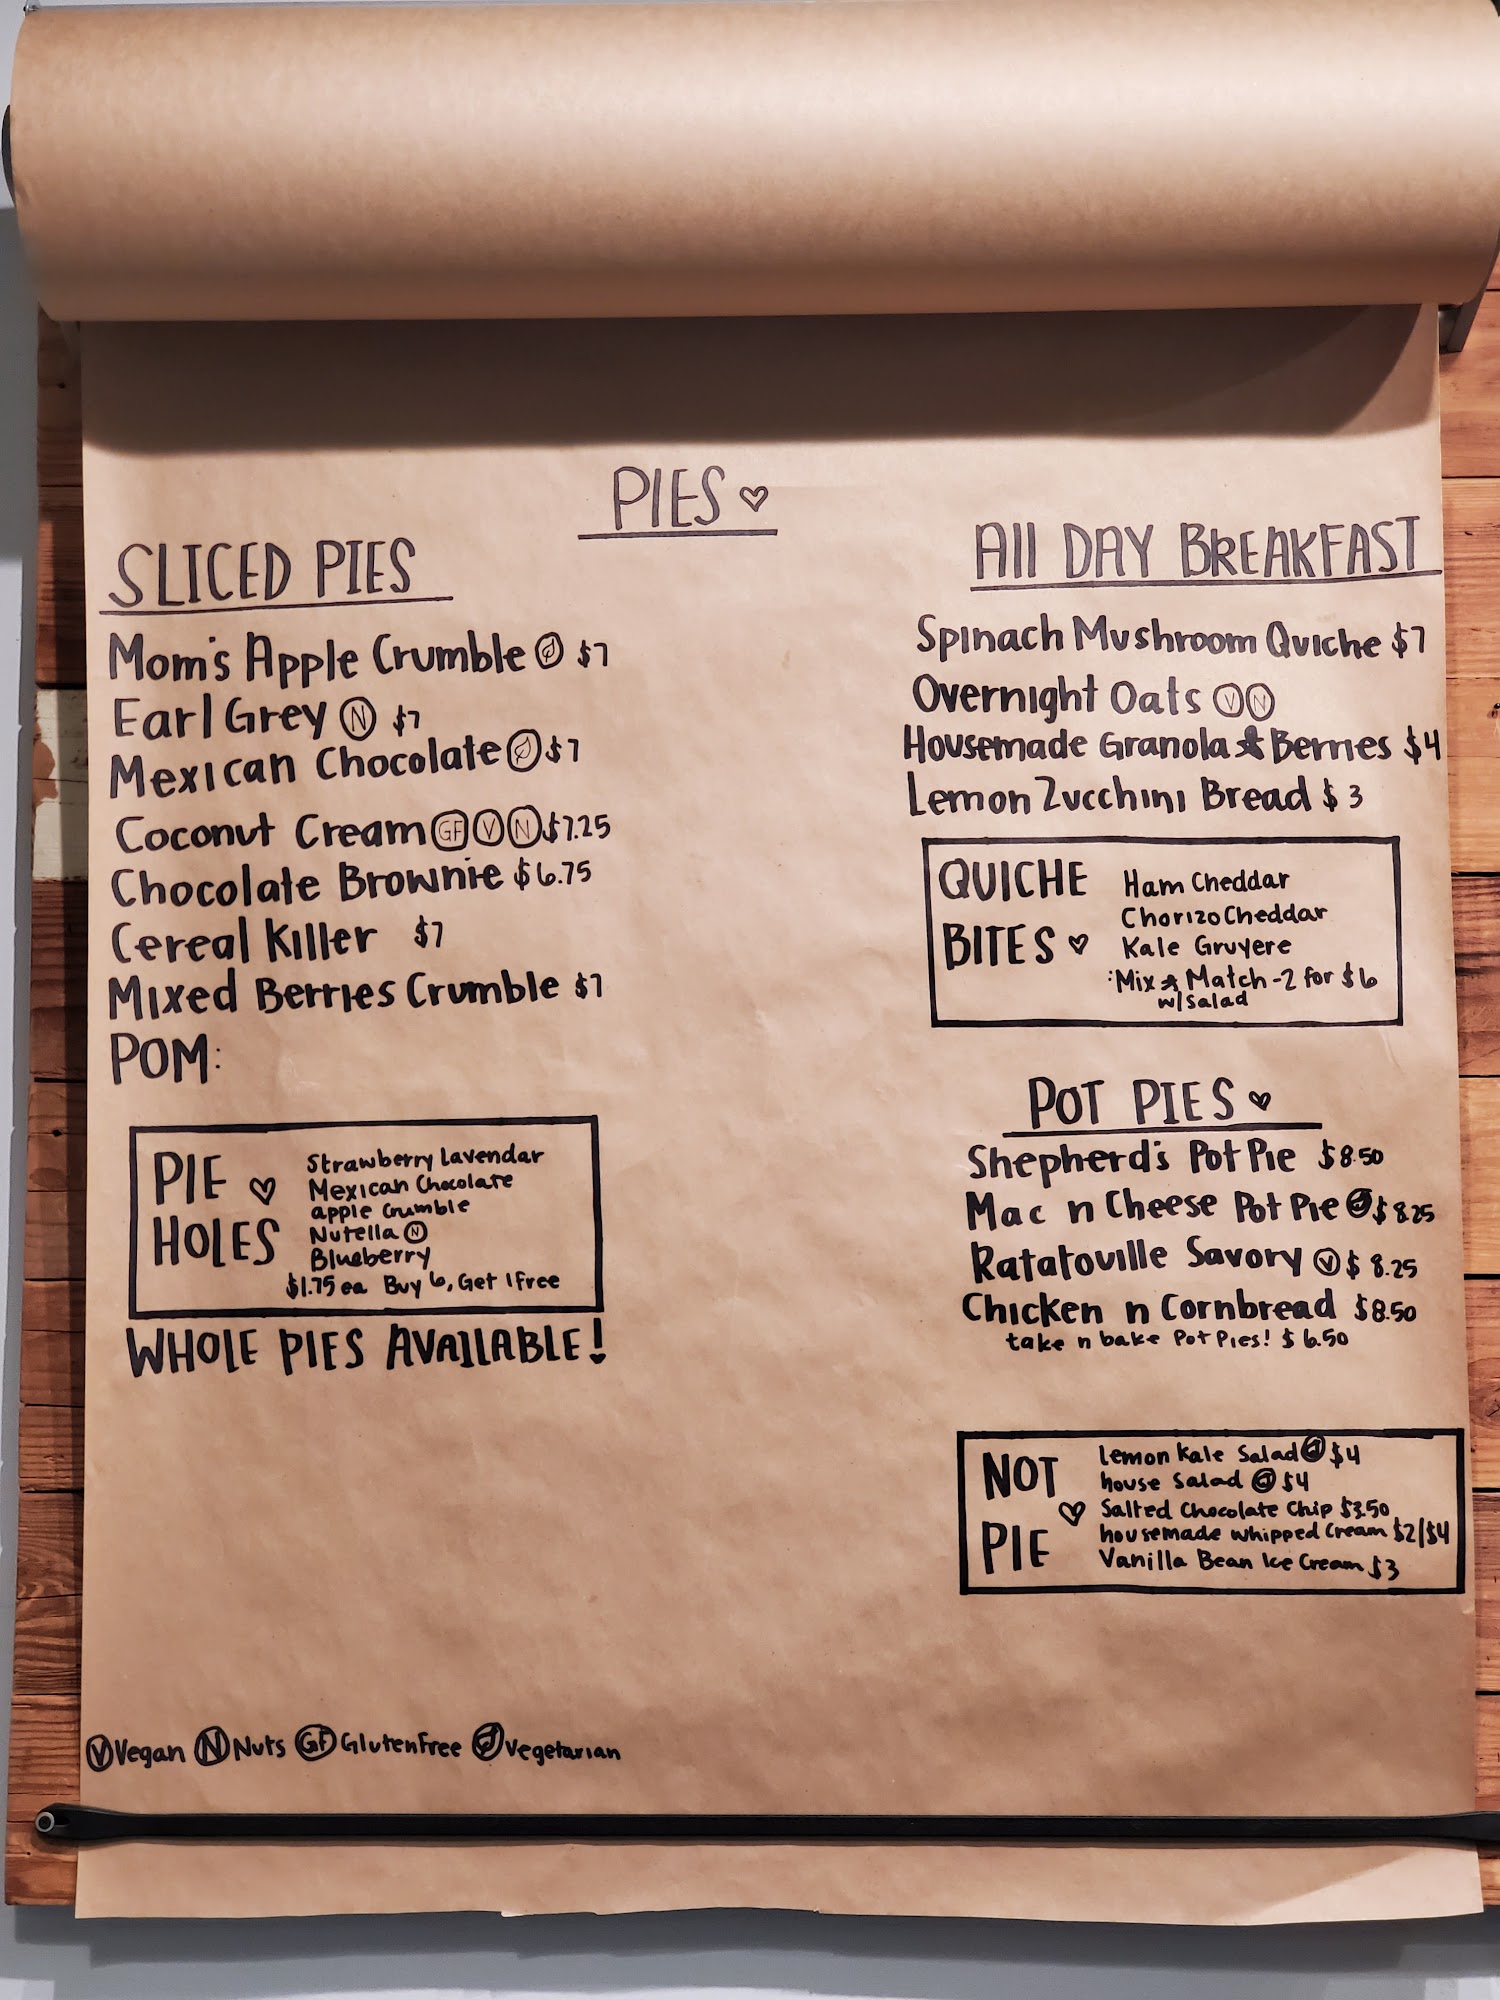 PIES
SLICED PIES
Mom's Apple Crumble $7
Earl Grey N $7
Mexican Chocolate $7
Coconut Cream GF V N $7.25
Chocolate Brownie $6.75
Cereal Killer $7
Mixed Berries Crumble $7
POM:
PIE HOLES
Strawberry Lavendar
Mexican Chocolate
apple crumble
Nutella N
Blueberry
$1.75 ea Buy 6, Get 1 free
WHOLE PIES AVAILABLE!
All DAY BREAKFAST
Spinach Mushroom Quiche $7
Overnight Oats V N
Housemade Granola & Berries $4
Lemon Zucchini Bread $3
QUICHE BITES
Ham Cheddar
Chorizo Cheddar
Kale Gruyere
Mix & Match - 2 for $6
w/salad
POT PIES
Shepherd's Pot Pie $8.50
Mac n Cheese Pot Pie $8.25
Ratatouille Savory V $8.25
Chicken n Cornbread $8.50
take n bake Pot Pies! $6.50
NOT PIE
Lemon Kale Salad $4
house Salad $4
Salted Chocolate Chip $3.50
housemade whipped cream $2/$4
Vanilla Bean Ice Cream $3
V Vegan N Nuts GF GlutenFree Vegetarian